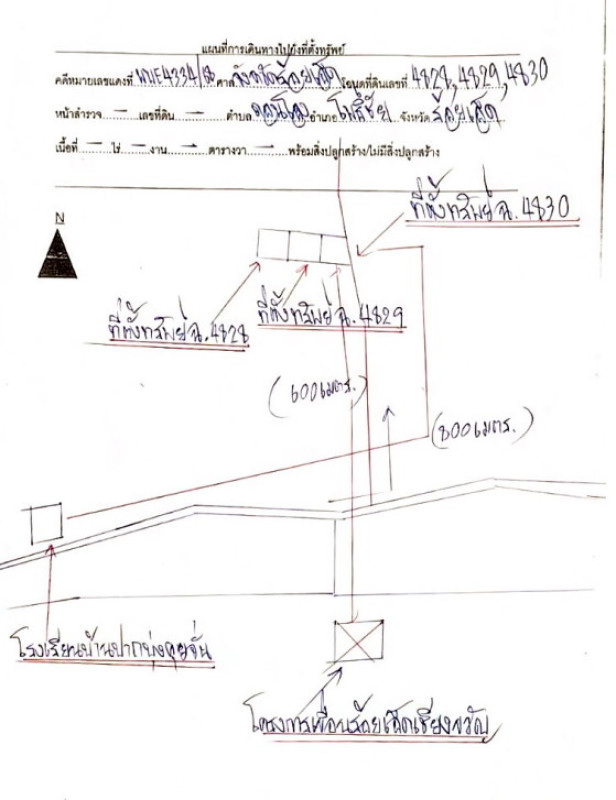 แผนที่การเดินทางไปยังที่ตั้งทรัพย์
คดีหมายเลขแดงที่ ศาล จังหวัดร้อยเอ็ด โฉนดที่ดินเลขที่ 4828, 4829, 4830
หน้าสำรวจ — เลขที่ดิน — ตำบล อำเภอ โพธิ์ชัย จังหวัด ร้อยเอ็ด
เนื้อที่ — ไร่ — งาน — ตารางวา — พร้อมสิ่งปลูกสร้าง/ไม่มีสิ่งปลูกสร้าง
ที่ตั้งทรัพย์ ฉ. 4830
N
ที่ตั้งทรัพย์ ฉ. 4829
ที่ตั้งทรัพย์ ฉ. 4828
(600 เมตร.)
(800 เมตร.)
โรงเรียนบ้าน
โครงการเขื่อนร้อยเอ็ดเชียงขวัญ